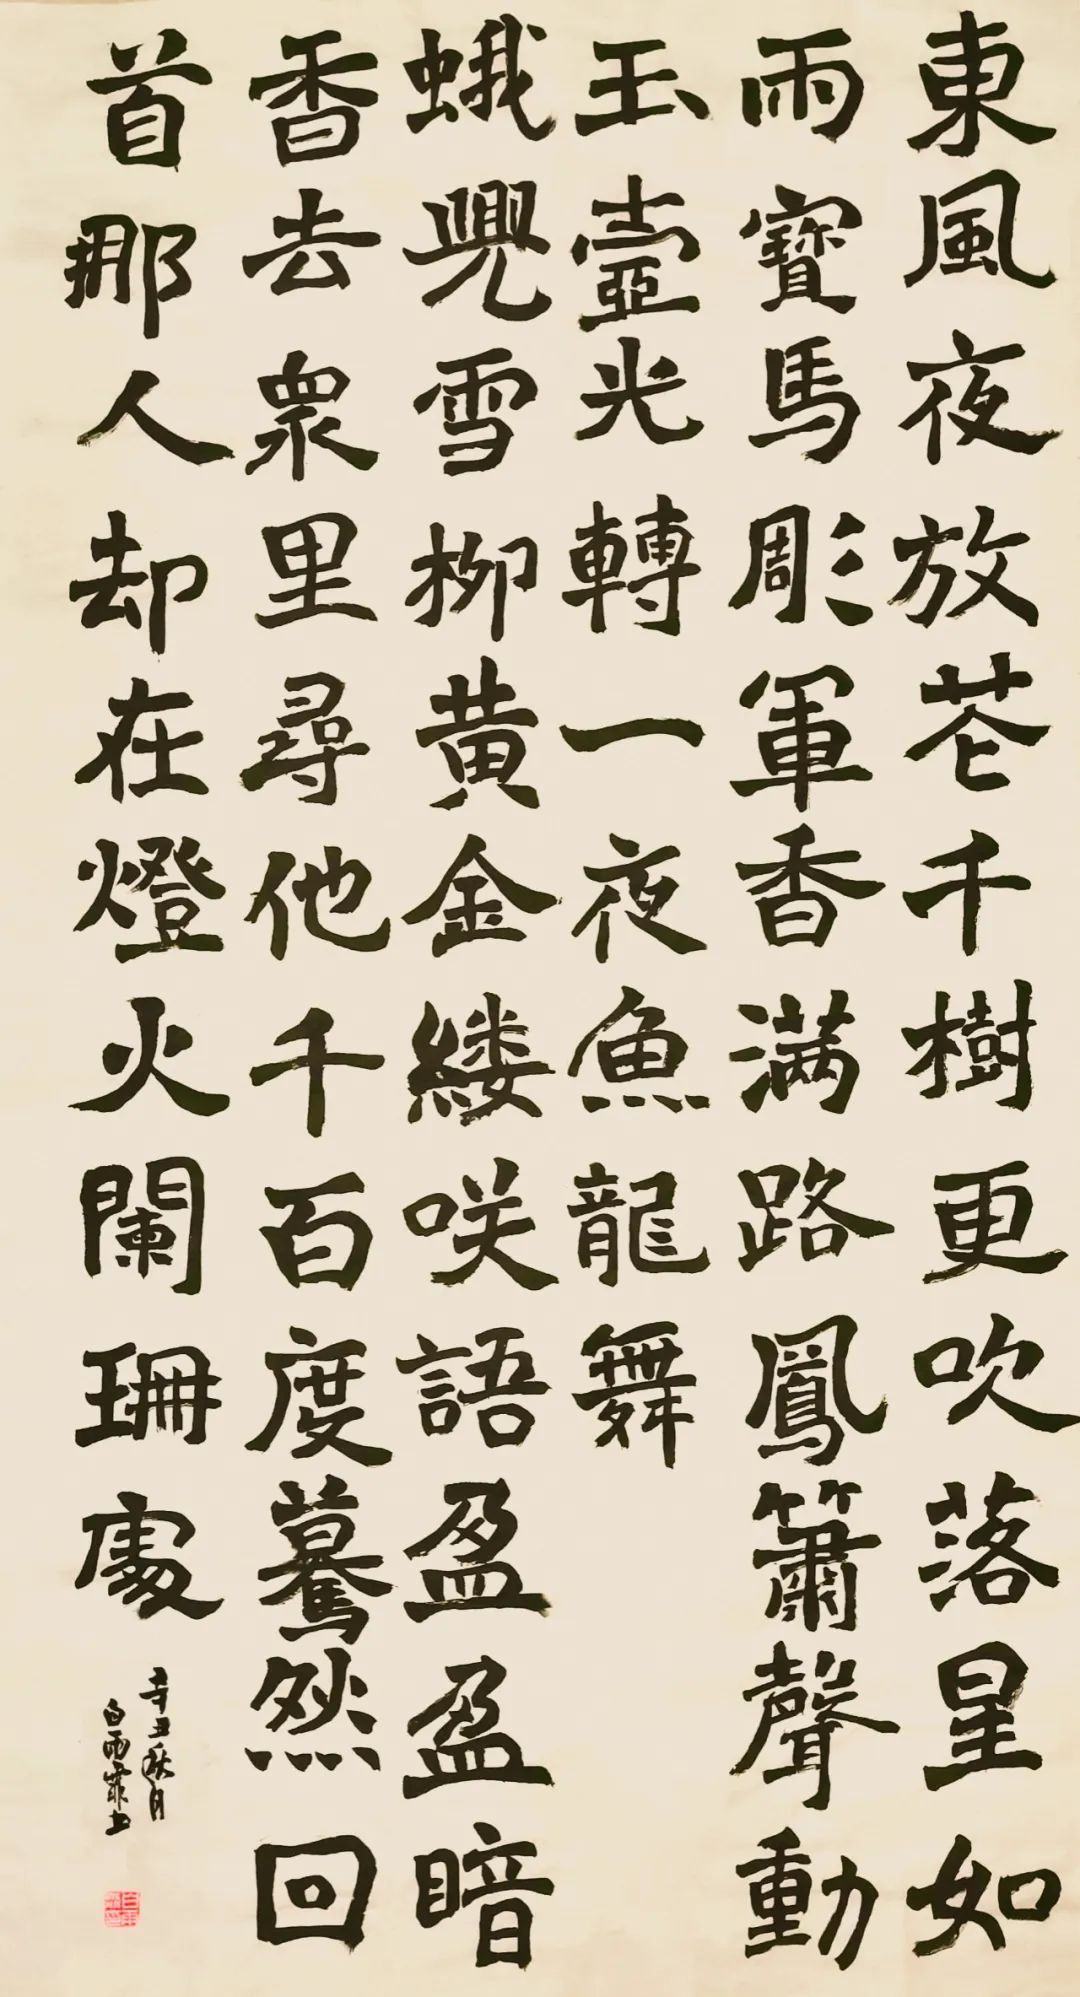 東風夜放花千樹更吹落星如
雨寶馬彫軍香滿路鳳簫聲動
玉壺光轉一夜魚龍舞
蛾兒雪柳黄金縷咲語盈盈暗
香去衆里尋他千百度驀然回
首那人却在燈火闌珊處
辛丑秋月
白雨霏书